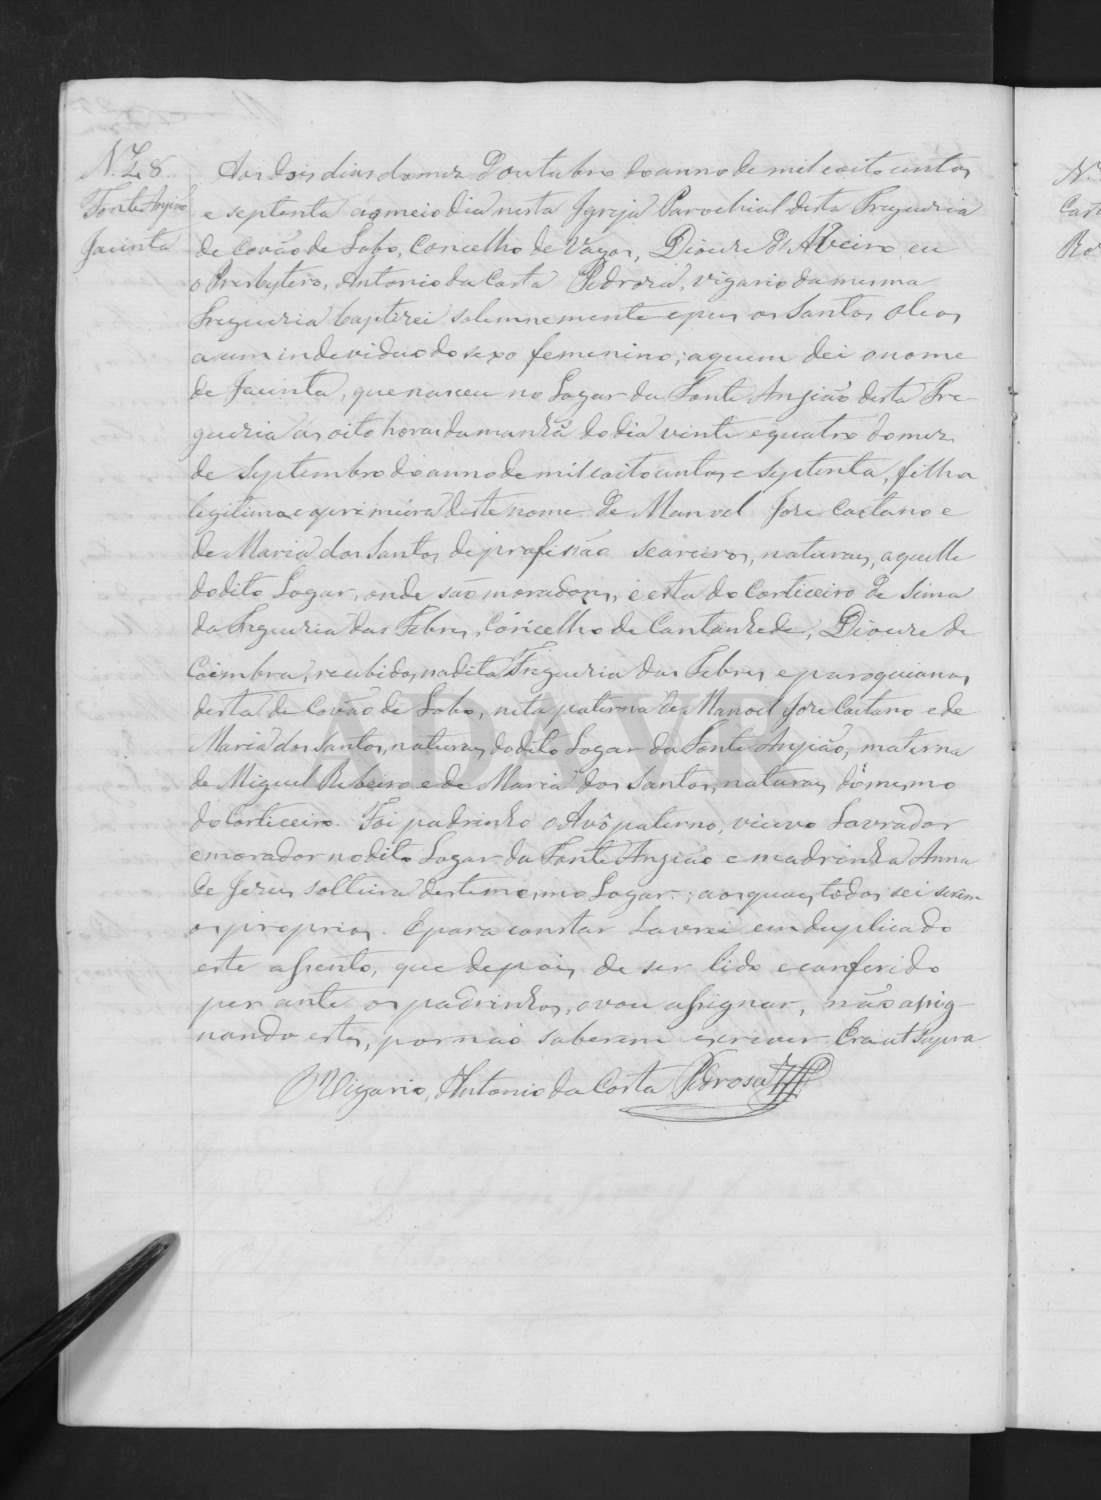 N. 28
Fonte Anjião
Jacinta
Aos dois dias do mez d'outubro do anno de mil e oito centos
e septenta ao meio dia nesta Igreja Parochial desta Freguezia
de Covão de Lobo, Concelho de Vagos, Diocese d'Aveiro, eu
o Presbytero, Antonio da Costa Pedroza, vigario da mesma
Freguezia baptizei solemnemente e puz os Santos oleos
a um individuo do sexo femenino; a quem dei o nome
de Jacinta, que nasceu no Logar da Fonte Anjião desta Fre-
guezia ás oito horas da manhã do dia vinte e quatro do mez
de Septembro do anno de mil e oito centos e septenta, filha
legitima e primeira deste nome de Manoel Jose Caetano e
de Maria dos Santos, de profissão seareiros, naturaes, aquelle
do dito Logar, onde são moradores, e esta do Corticeiro de Sima
da Freguezia das Febres, Concelho de Cantanhede, Diocese de
Coimbra, recebidos na dita Freguezia das Febres e paroquianos
desta de Covão de Lobo, neta paterna de Manoel Jose Caetano e de
Maria dos Santos, naturaes do dito Logar da Fonte Anjião, materna
de Miguel Ribeiro e de Maria dos Santos, naturaes do mesmo
do Corticeiro. Foi padrinho o Avô paterno, viuvo Lavrador
e morador no dito Logar da Fonte Anjião e madrinha Anna
de Jezus solteira deste mesmo Logar; aos quaes todos sei serem
os proprios. E para constar Lavrei em duplicado
este assento, que depois de ser lido e conferido
per ante os padrinhos, o vou assignar, não assig
nando estes, por não saberem escrever. Era ut supra
O Vigario, Antonio da Costa Pedrosa
ADAVR